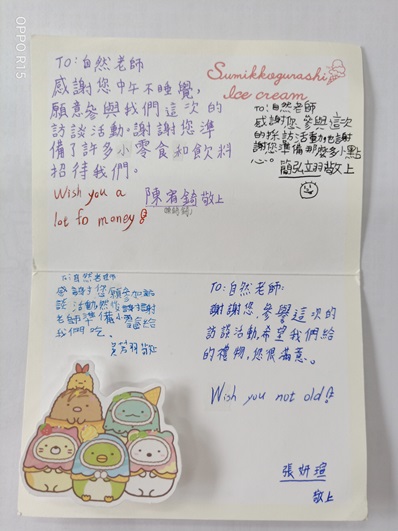 TO:自然老師
感謝您中午不睡覺,
願意參與我們這次的
訪談活動。謝謝您準
備了許多小零食和飲料
招待我們。
Wish you a
lot fo money
敬上
Sumikkogurashi
Ice cream
TO:自然老師
感謝您參與這次
的採訪活動,也謝
謝您準備那麼多小點
心。
簡弘立羽敬上
TO:自然老師
老師準備小零食給
我們吃。
敬上
TO:自然老師:
謝謝您,參與這次的
訪談活動,希望我們給
的禮物,您很滿意。
Wish you not old!
張妍瑄
敬上
OPPO R15